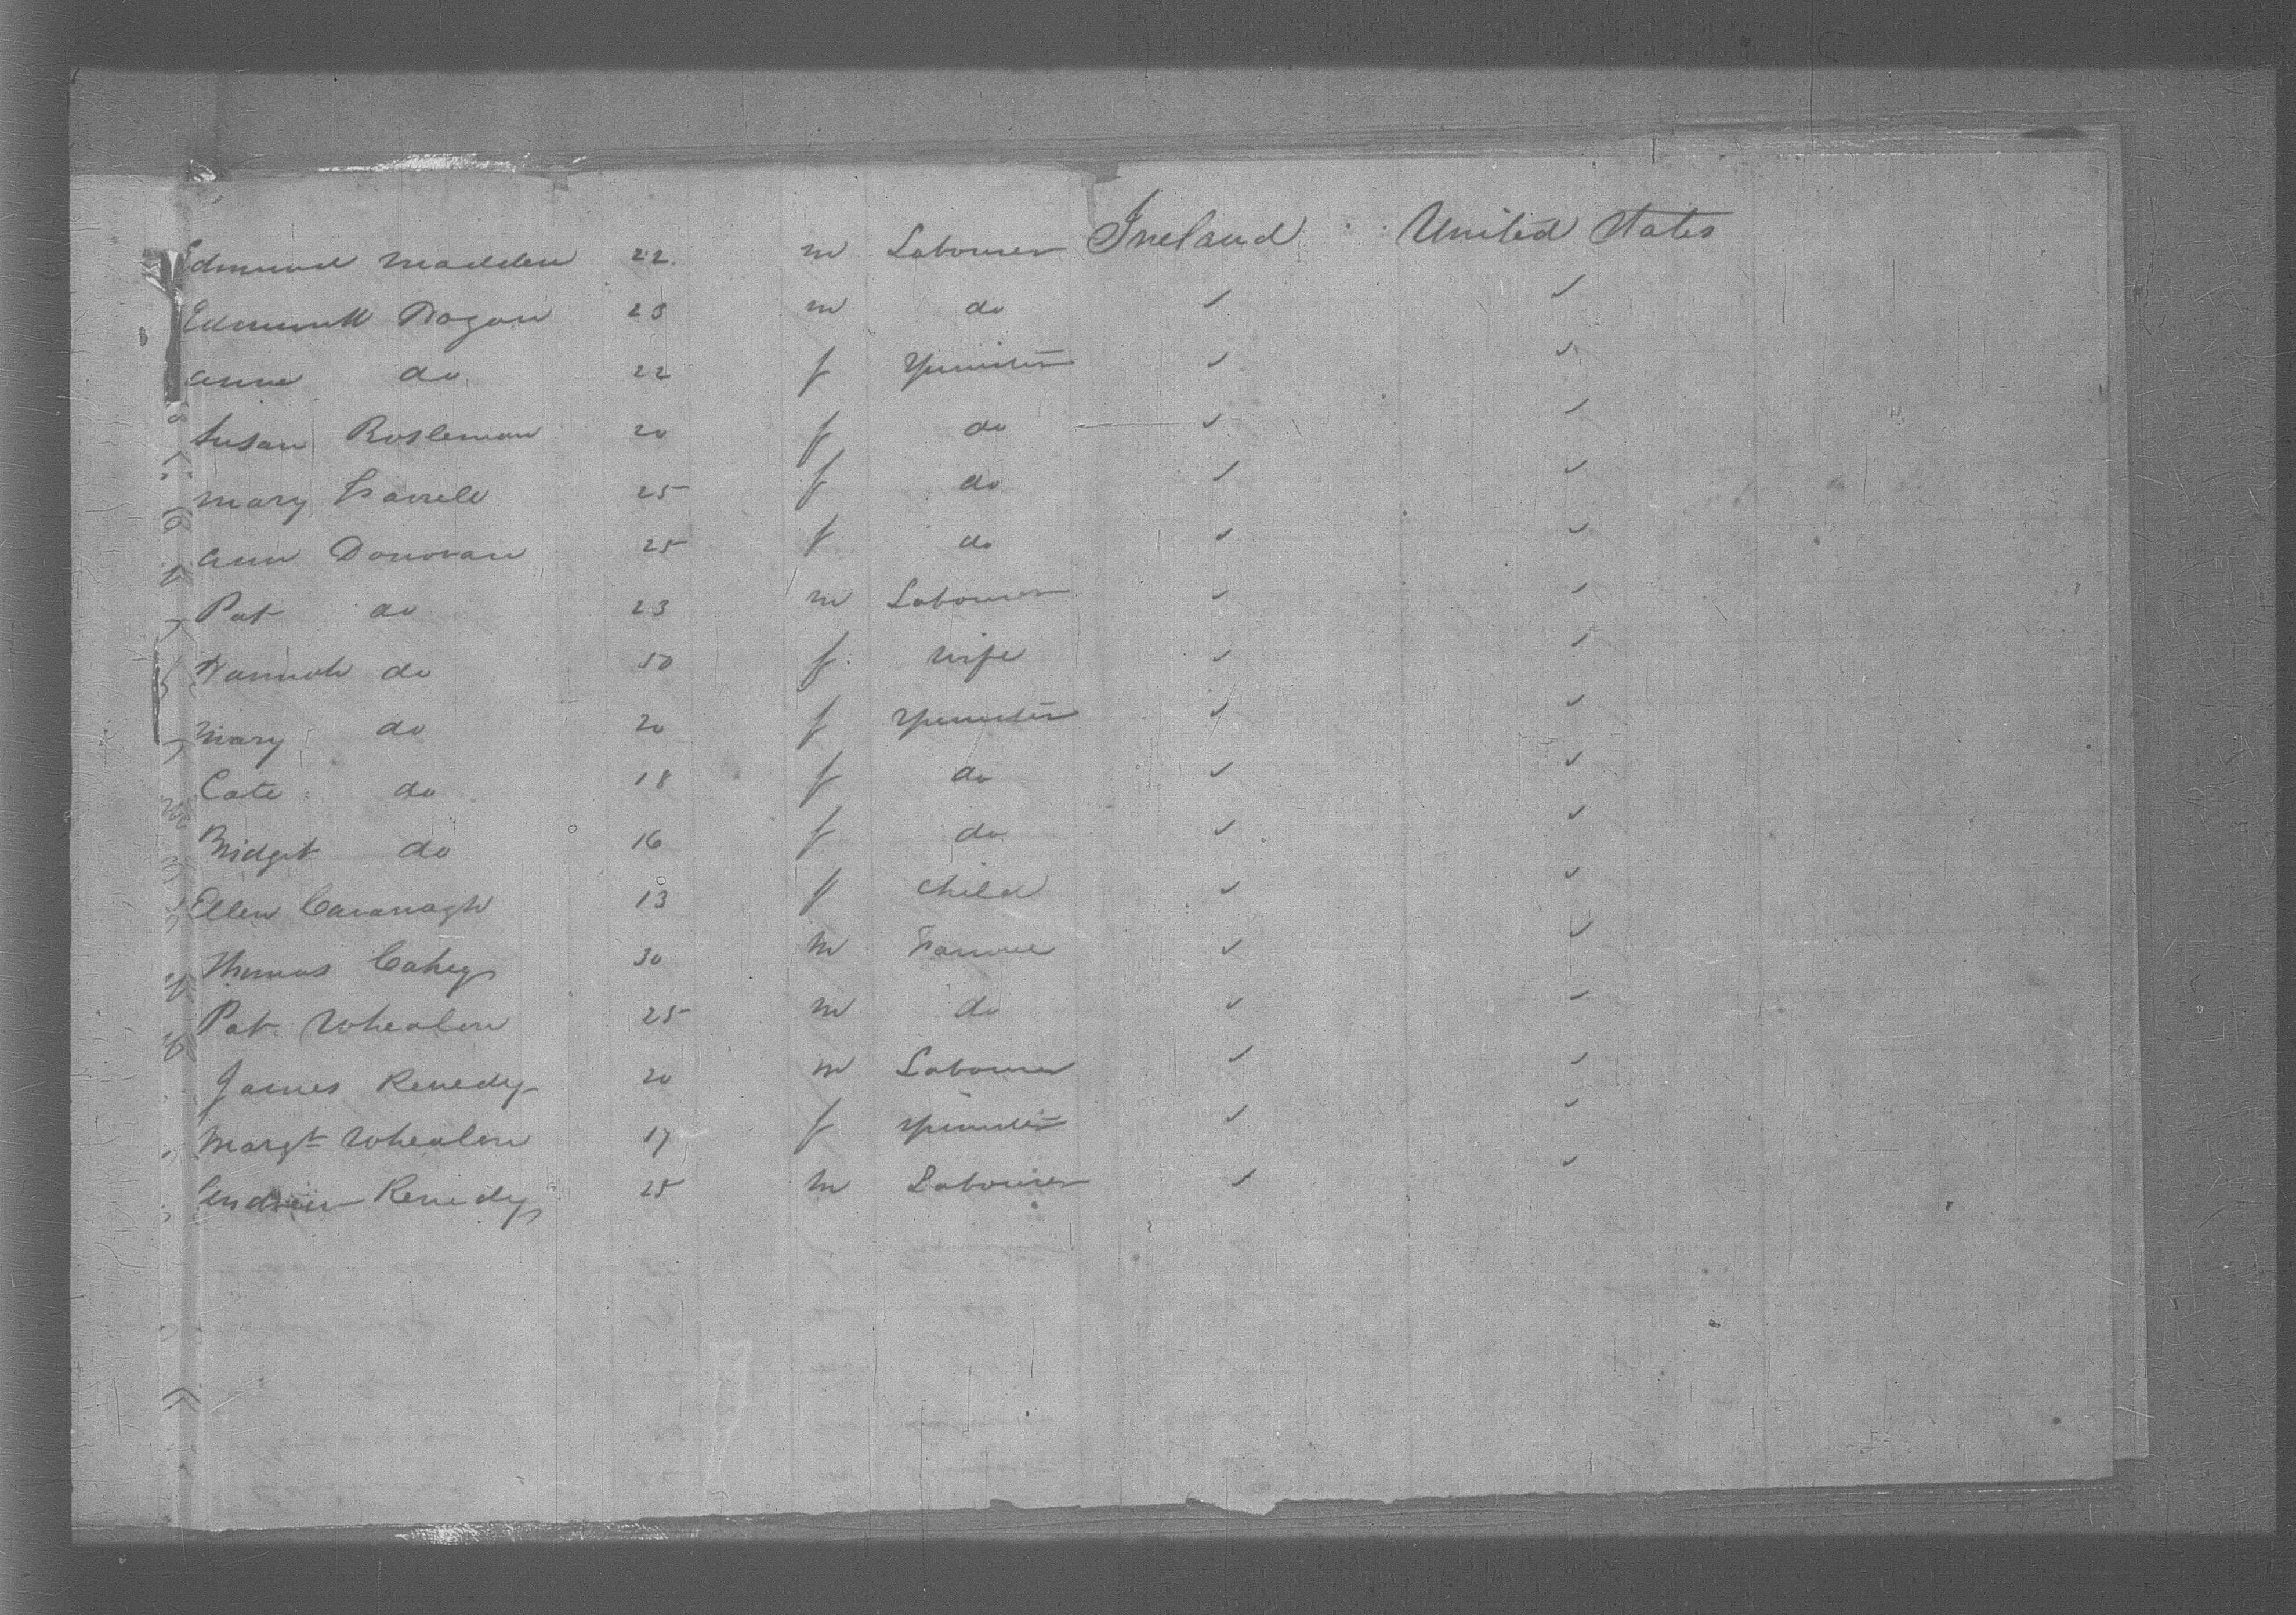 Edmund Madden 22 m Labourer Ireland United States
Edmund Dogan 23 m do ✓ ✓
Anne do 22 f Spinster ✓ ✓
Susan 20 f do ✓ ✓
Mary Farrell 25 f do ✓ ✓
Ann Donovan 25 f do ✓ ✓
Pat do 23 m Labourer ✓ ✓
Hannah do 50 f Wife ✓ ✓
Mary do 20 f Spinster ✓ ✓
Cate do 18 f do ✓ ✓
Bridget do 16 f do ✓ ✓
Ellen Cavanagh 13 f Child ✓ ✓
Thomas Cahey 30 m Farmer ✓ ✓
Pat Whealen 25 m do ✓ ✓
James Kenedy 20 m Labourer ✓ ✓
Margt Whealen 17 f Spinster ✓ ✓
Andrew Kenedy 25 m Labourer ✓ ✓